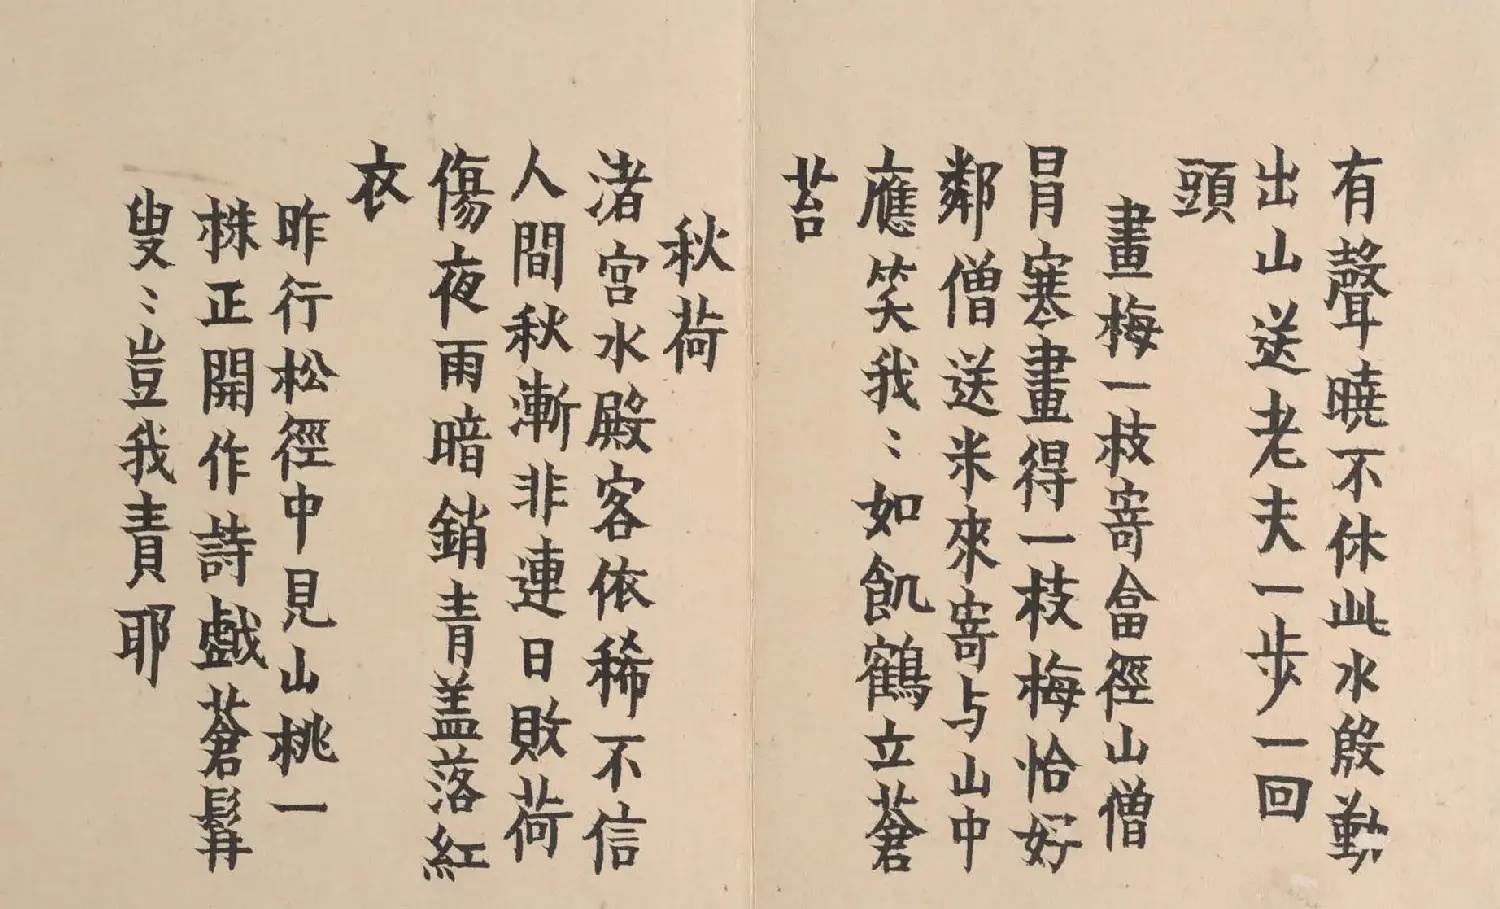 有聲曉不休此水殷勤
出山送老夫一步一回
頭
畫梅一枝寄畲徑山僧
冐寒畫得一枝梅恰好
鄰僧送米來寄与山中
應笑我〻如飢鶴立蒼
苔
秋荷
渚宮水殿客依稀不信
人間秋漸非連日敗荷
傷夜雨暗銷青蓋落紅
衣
昨行松徑中見山桃一
株正開作詩戲蒼髯
叟〻豈我責耶